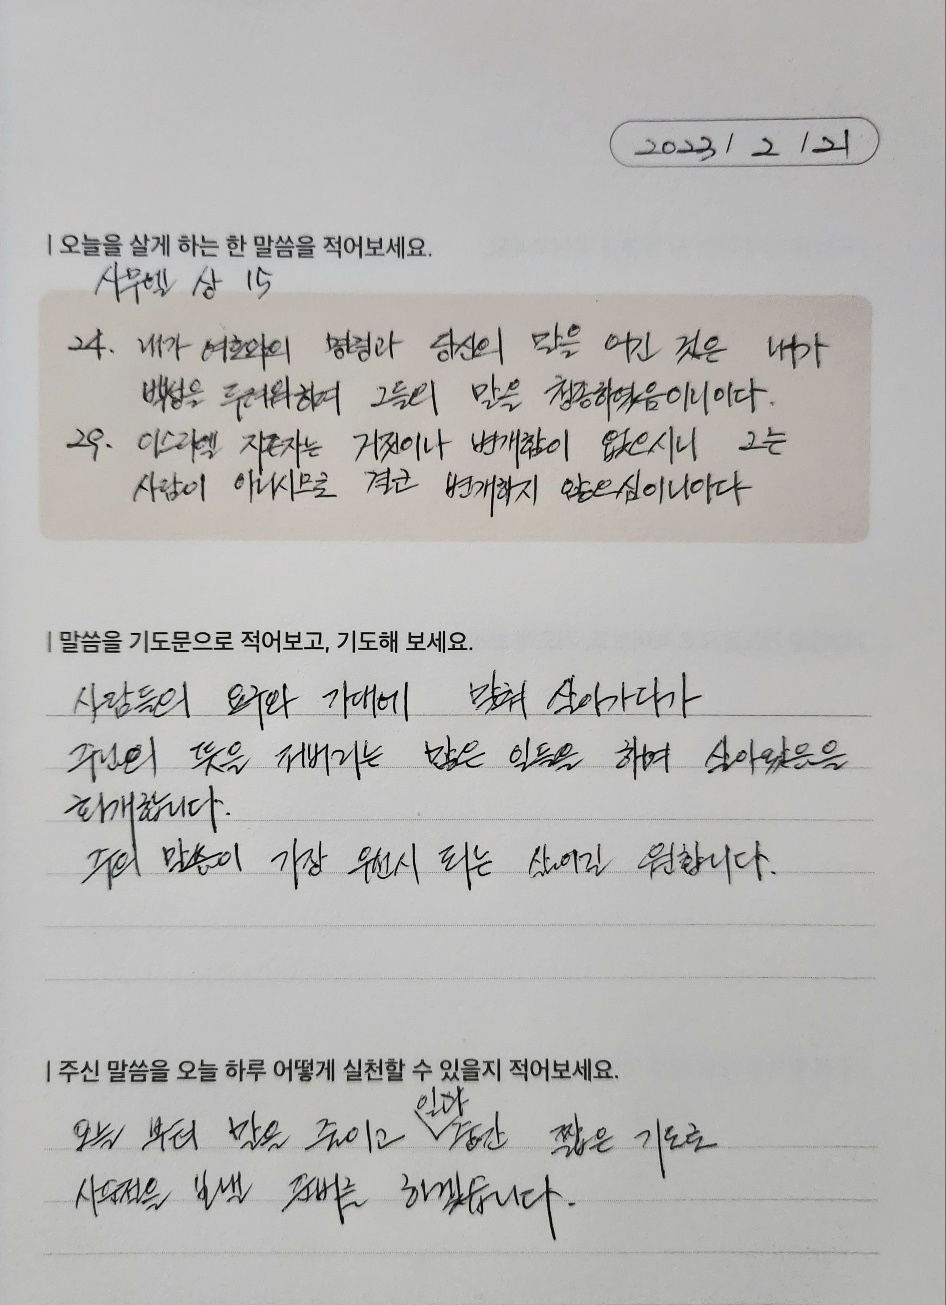 2023 / 2 / 21
오늘을 살게 하는 한 말씀을 적어보세요.
사무엘 상 15
24. 내가 여호와의 명령과 당신의 말을 어긴 것은 내가
백성을 두려워하여 그들의 말을 청종하였음이니이다.
29. 이스라엘 지존자는 거짓이나 변개함이 없으시니 그는
사람이 아니시므로 결코 변개하지 않으심이니이다
말씀을 기도문으로 적어보고, 기도해 보세요.
사람들의 요구와 기대에 맞춰 살아가다가
주님의 뜻을 저버리는 많은 일들을 하며 살아왔음을
회개합니다.
주의 말씀이 가장 우선시 되는 삶이길 원합니다.
주신 말씀을 오늘 하루 어떻게 실천할 수 있을지 적어보세요.
일과
오늘 부터 말을 줄이고 중간 짧은 기도로
사순절을 보낼 준비를 하겠습니다.